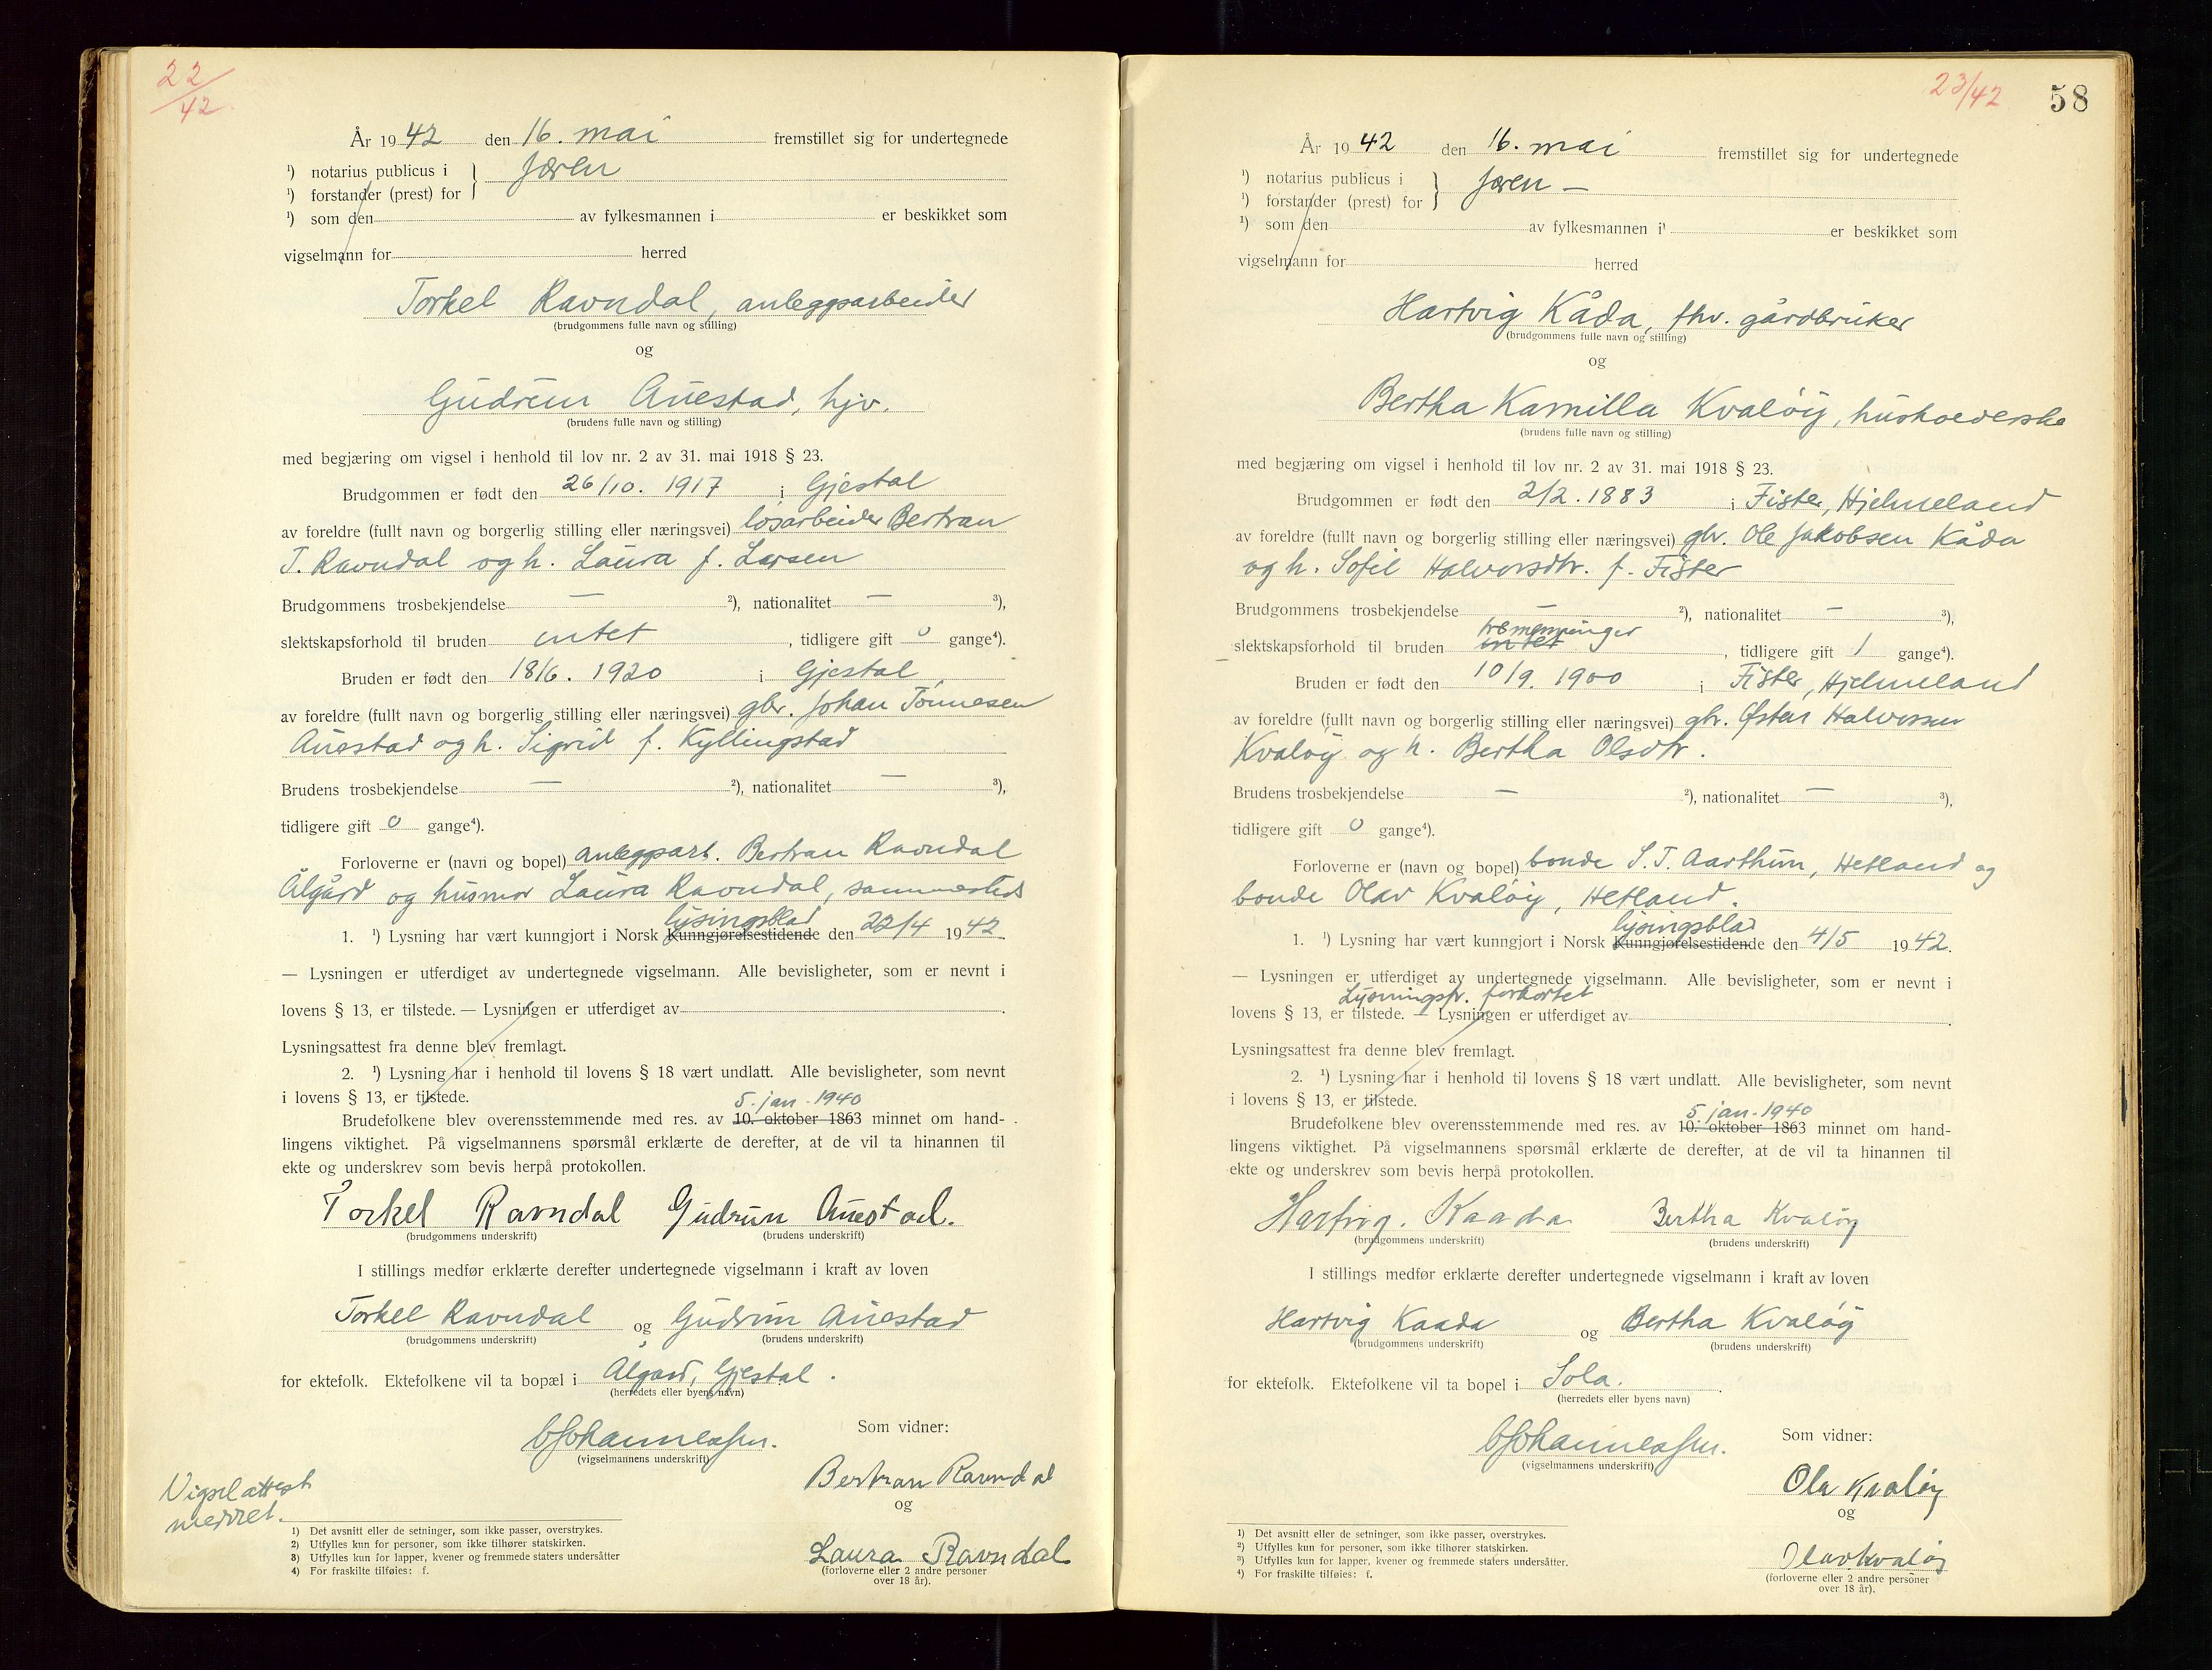 22/42
År 1942 den 16. mai fremstillet sig for undertegnede
¹) notarius publicus i } Jæren
¹) forstander (prest) for
¹) som den av fylkesmannen i er beskikket som
vigselmann for herred
Torkel Ravndal, anleggsarbeider
(brudgommens fulle navn og stilling)
og
Gudrun Auestad, hjv.
(brudens fulle navn og stilling)
med begjæring om vigsel i henhold til lov nr. 2 av 31. mai 1918 § 23.
Brudgommen er født den 26/10. 1917 i Gjestal
av foreldre (fullt navn og borgerlig stilling eller næringsvei) løsarbeider Bertran
T. Ravndal og h. Laura f. Larsen
Brudgommens trosbekjendelse — ²), nationalitet — ³),
slektskapsforhold til bruden intet, tidligere gift 0 gange⁴).
Bruden er født den 18/6. 1920 i Gjestal
av foreldre (fullt navn og borgerlig stilling eller næringsvei) gbr. Johan Tønnesen
Auestad og h. Sigrid f. Kyllingstad
Brudens trosbekjendelse — ²), nationalitet — ³),
tidligere gift 0 gange⁴).
Forloverne er (navn og bopel) anleggsarb. Bertran Ravndal
Ålgård og husmor Laura Ravndal, sammesteds
lysingsblad
1. ¹) Lysning har vært kunngjort i Norsk Kunngjørelsestidende den 22/4 1942.
— Lysningen er utferdiget av undertegnede vigselmann. Alle bevisligheter, som er nevnt i
lovens § 13, er tilstede. — Lysningen er utferdiget av .
Lysningsattest fra denne blev fremlagt.
2. ¹) Lysning har i henhold til lovens § 18 vært undlatt. Alle bevisligheter, som nevnt
i lovens § 13, er tilstede.
5. jan. 1940
Brudefolkene blev overensstemmende med res. av 10. oktober 1863 minnet om hand-
lingens viktighet. På vigselmannens spørsmål erklærte de derefter, at de vil ta hinannen til
ekte og underskrev som bevis herpå protokollen.
Torkel Ravndal Gudrun Auestad.
(brudgommens underskrift) (brudens underskrift)
I stillings medfør erklærte derefter undertegnede vigselmann i kraft av loven
Torkel Ravndal og Gudrun Auestad
(brudgommens underskrift) (brudens underskrift)
for ektefolk. Ektefolkene vil ta bopæl i Ålgård, Gjestal.
(herredets eller byens navn)
Som vidner:
(vigselmannens underskrift)
Bertran Ravndal
og
Laura Ravndal
(forloverne eller 2 andre personer
over 18 år).
Vigselattest
meddelt.
1) Det avsnitt eller de setninger, som ikke passer, overstrykes.
2) Utfylles kun for personer, som ikke tilhører statskirken.
3) Utfylles kun for lapper, kvener og fremmede staters undersåtter
4) For fraskilte tilføies: f.
23/42 58
År 1942 den 16. mai fremstillet sig for undertegnede
¹) notarius publicus i } Jæren —
¹) forstander (prest) for
¹) som den av fylkesmannen i er beskikket som
vigselmann for herred
Hartvig Kåda, fhv. gårdbruker
(brudgommens fulle navn og stilling)
og
Bertha Kamilla Kvaløy, husholderske
(brudens fulle navn og stilling)
med begjæring om vigsel i henhold til lov nr. 2 av 31. mai 1918 § 23.
Brudgommen er født den 2/2. 1883 i Fister, Hjelmeland
av foreldre (fullt navn og borgerlig stilling eller næringsvei) gbr. Ole Jakobsen Kåda
og h. Sofie Halvorsdtr. f. Fister
Brudgommens trosbekjendelse — ²), nationalitet — ³),
tremenninger
slektskapsforhold til bruden intet, tidligere gift 1 gange⁴).
Bruden er født den 10/9. 1900 i Fister, Hjelmeland
av foreldre (fullt navn og borgerlig stilling eller næringsvei) gbr. Østen Halvorsen
Kvaløy og h. Bertha Olsdtr.
Brudens trosbekjendelse — ²), nationalitet — ³),
tidligere gift 0 gange⁴).
Forloverne er (navn og bopel) bonde S. T. Aarthun, Hetland og
bonde Olav Kvaløy, Hetland.
lysingsblad
1. ¹) Lysning har vært kunngjort i Norsk Kunngjørelsestidende den 4/5 1942.
— Lysningen er utferdiget av undertegnede vigselmann. Alle bevisligheter, som er nevnt i
Lysningsfr. forkortet
lovens § 13, er tilstede. — Lysningen er utferdiget av .
Lysningsattest fra denne blev fremlagt.
2. ¹) Lysning har i henhold til lovens § 18 vært undlatt. Alle bevisligheter, som nevnt
i lovens § 13, er tilstede.
5. jan. 1940
Brudefolkene blev overensstemmende med res. av 10. oktober 1863 minnet om hand-
lingens viktighet. På vigselmannens spørsmål erklærte de derefter, at de vil ta hinannen til
ekte og underskrev som bevis herpå protokollen.
Hartvig. Kaada Bertha Kvaløy
(brudgommens underskrift) (brudens underskrift)
I stillings medfør erklærte derefter undertegnede vigselmann i kraft av loven
Hartvig Kaada og Bertha Kvaløy
(brudgommens underskrift) (brudens underskrift)
for ektefolk. Ektefolkene vil ta bopel i Sola.
(herredets eller byens navn)
Som vidner:
(vigselmannens underskrift)
Ola Kvaløy
og
Olav Kvaløy
(forloverne eller 2 andre personer
over 18 år).
1) Det avsnitt eller de setninger, som ikke passer, overstrykes.
2) Utfylles kun for personer, som ikke tilhører statskirken.
3) Utfylles kun for lapper, kvener og fremmede staters undersåtter.
4) For fraskilte tilføies: f.